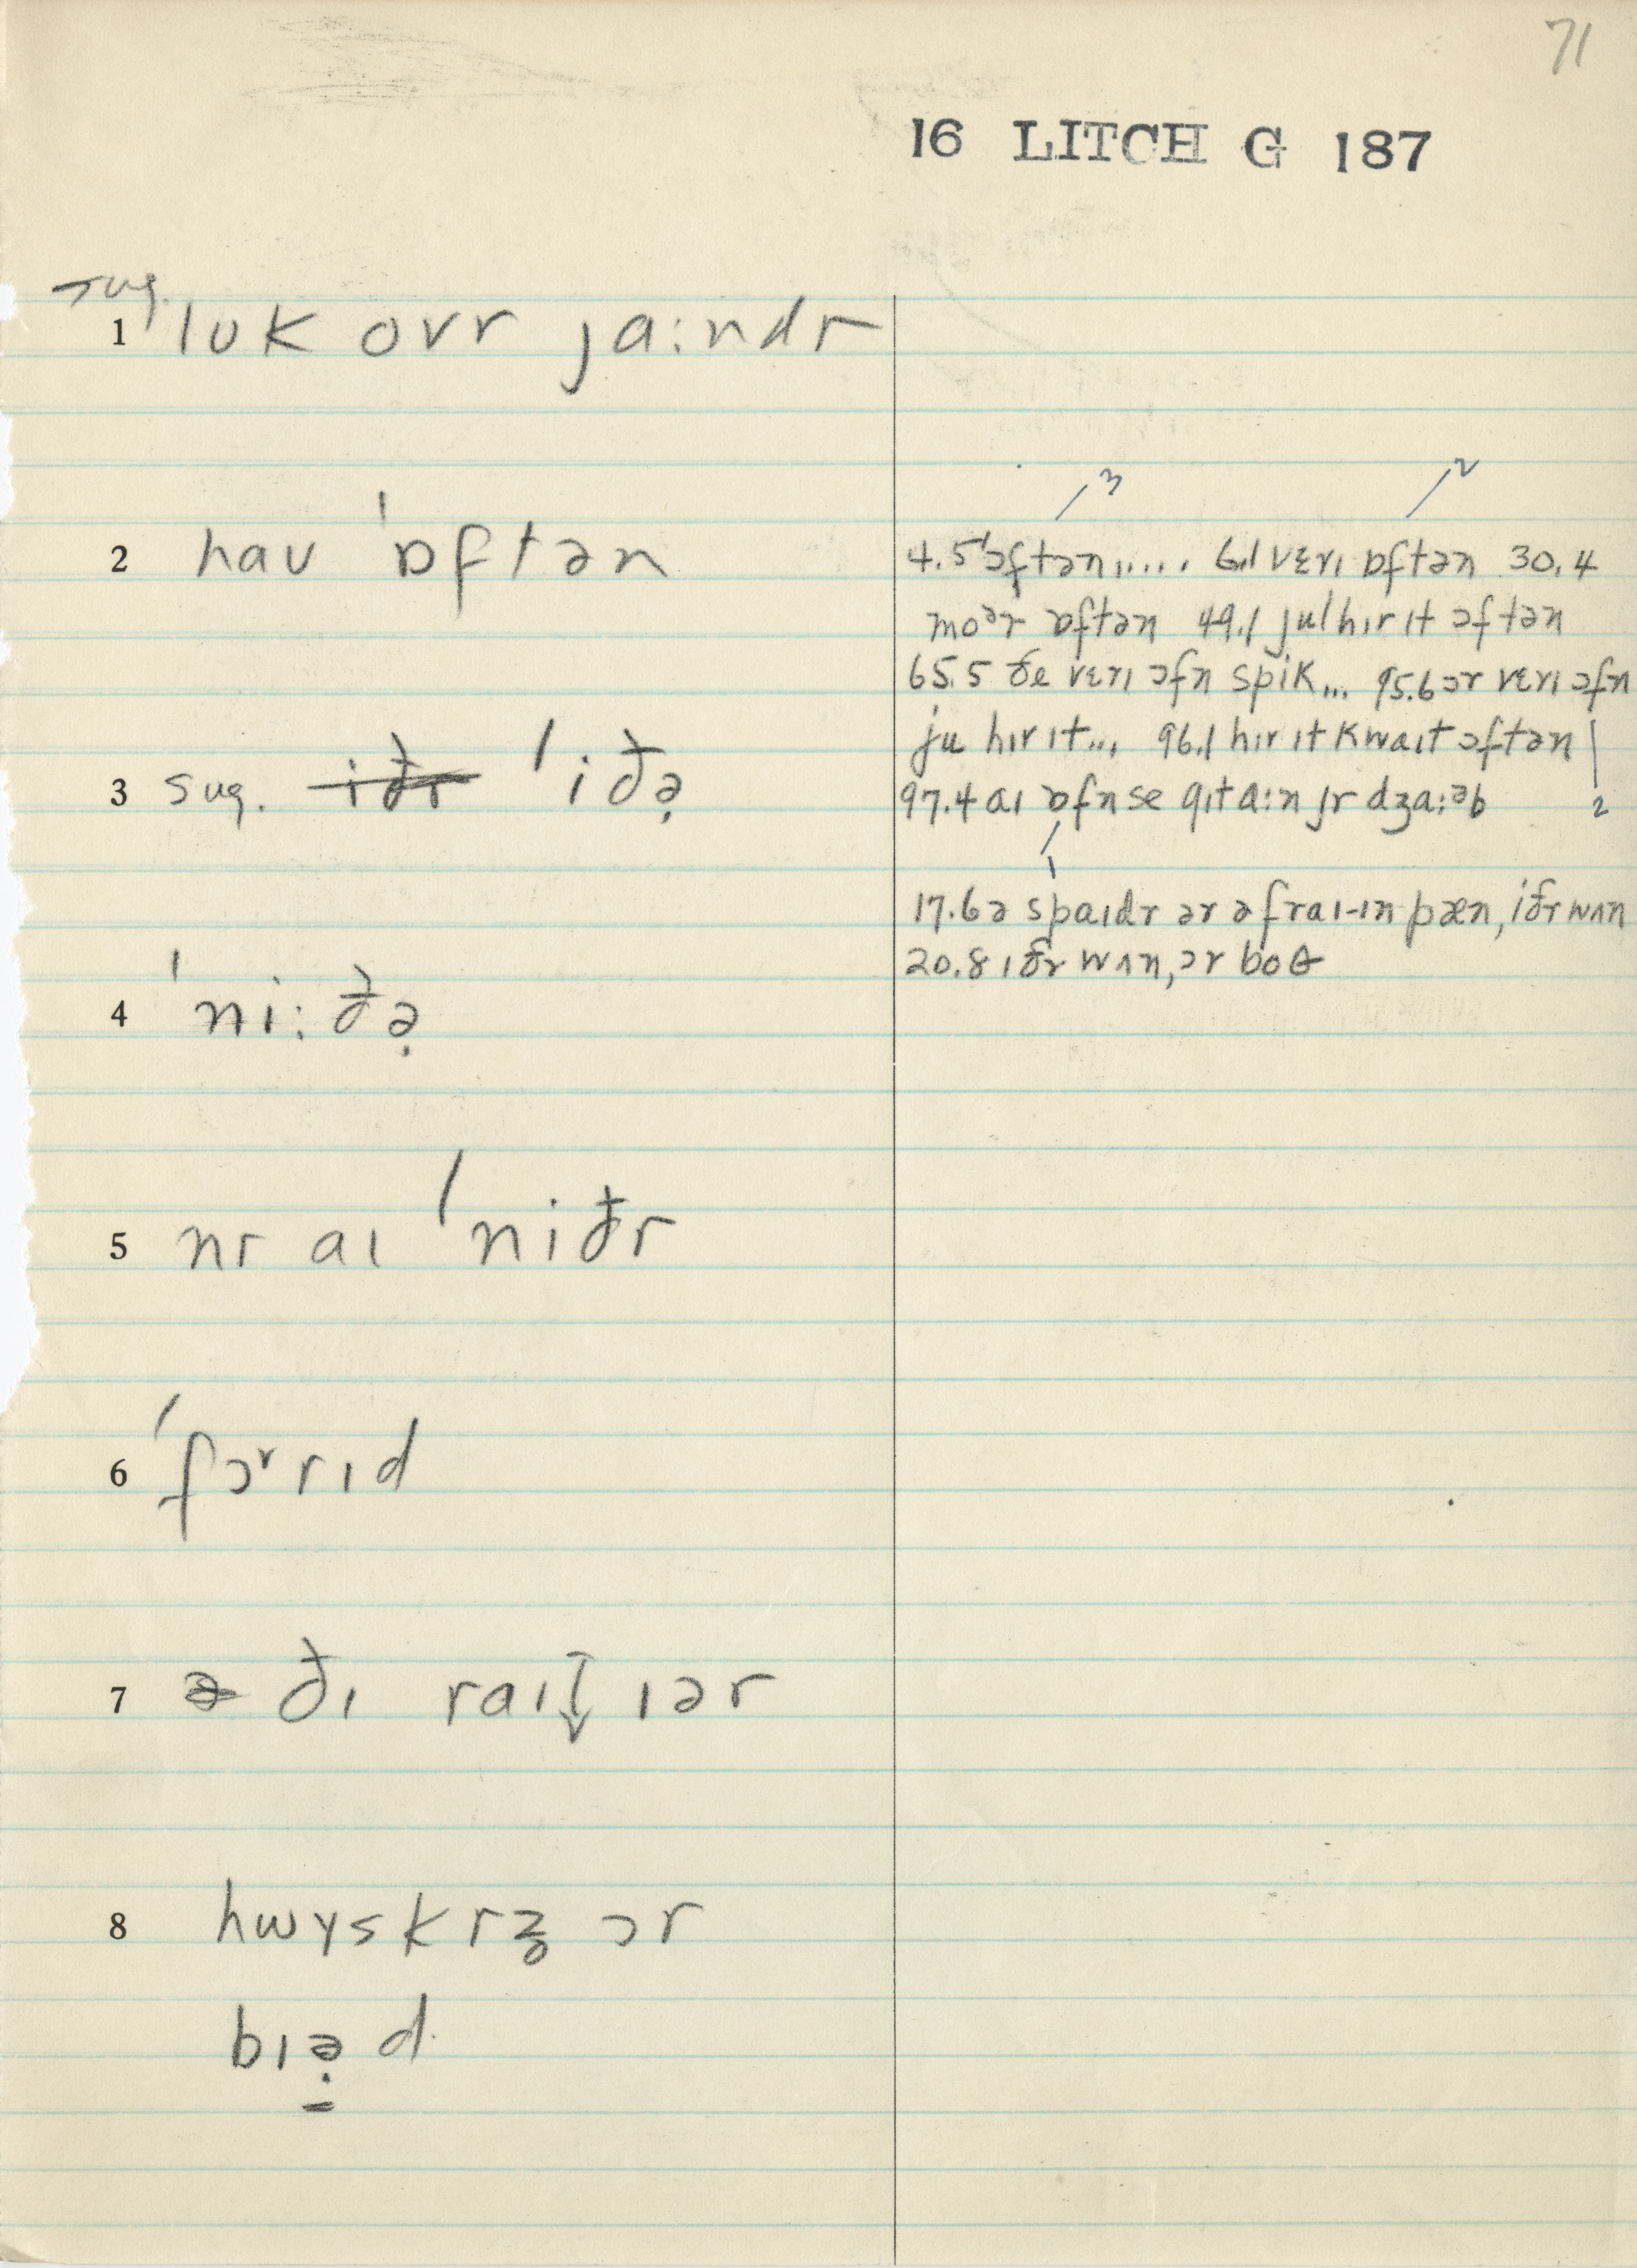 71
16 LITCH G 187
sug.
1 lʊk ovr ja:ndr
2 haʊ ˈɒftən
3 sug. iðr ˈiðə̣
4 ˈni:ðə̣
5 nr aɪ ˈniðr
6 ˈfɔʳrɪd
7 ə ðɪ raiꜜ ɪər
8 hwʏskrʒ ɔr
bɪə̣d
3 2
4.5 ˈɔftən,.... 6.1 vɛrɪ ɒftən 30.4
moᵊr ɒftən 49.1 jul hɪr ɪt ɔftən
65.5 ðe vɛrɪ ɔfn spik... 95.6 ɔr vɛrɪ ɔfn
ju hɪr ɪt... 96.1 hɪr ɪt kwaɪt ɔftən
97.4 aɪ ɒfn se gɪt a:n jr dʒa:əb 2
1
17.6 ə spaɪdr ər ə fraɪ-ɪn pæn, iðr wʌn
20.8 ɪðr wʌn, ɔr boθ